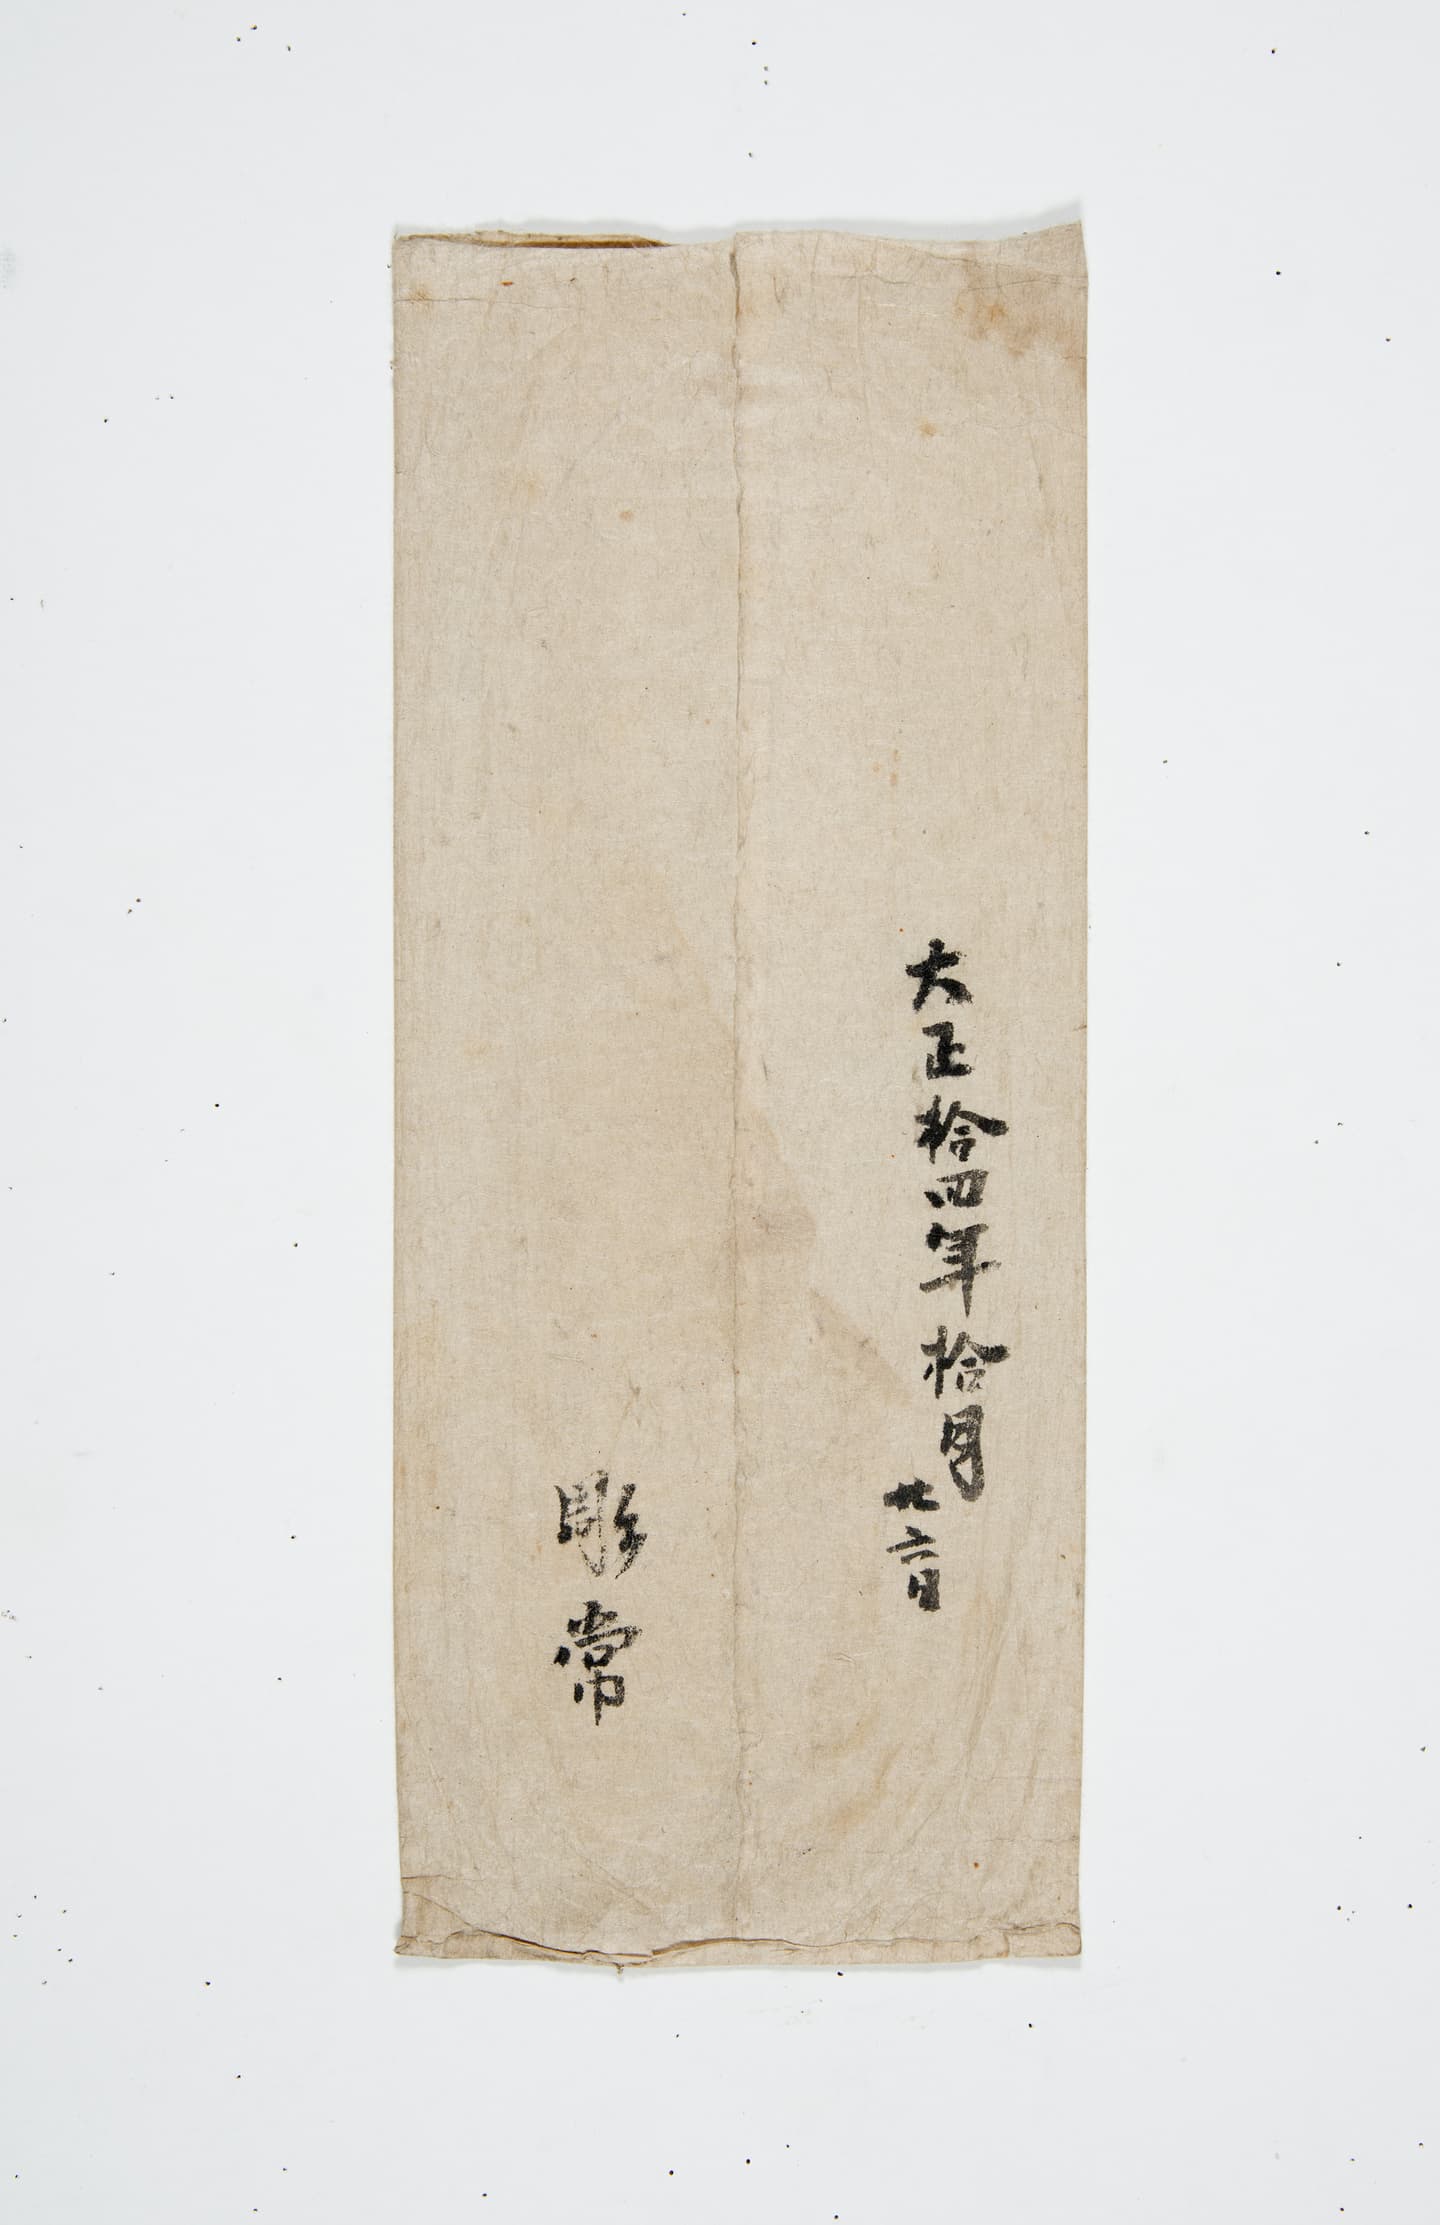 大正拾四年拾月
廿六日
彫常